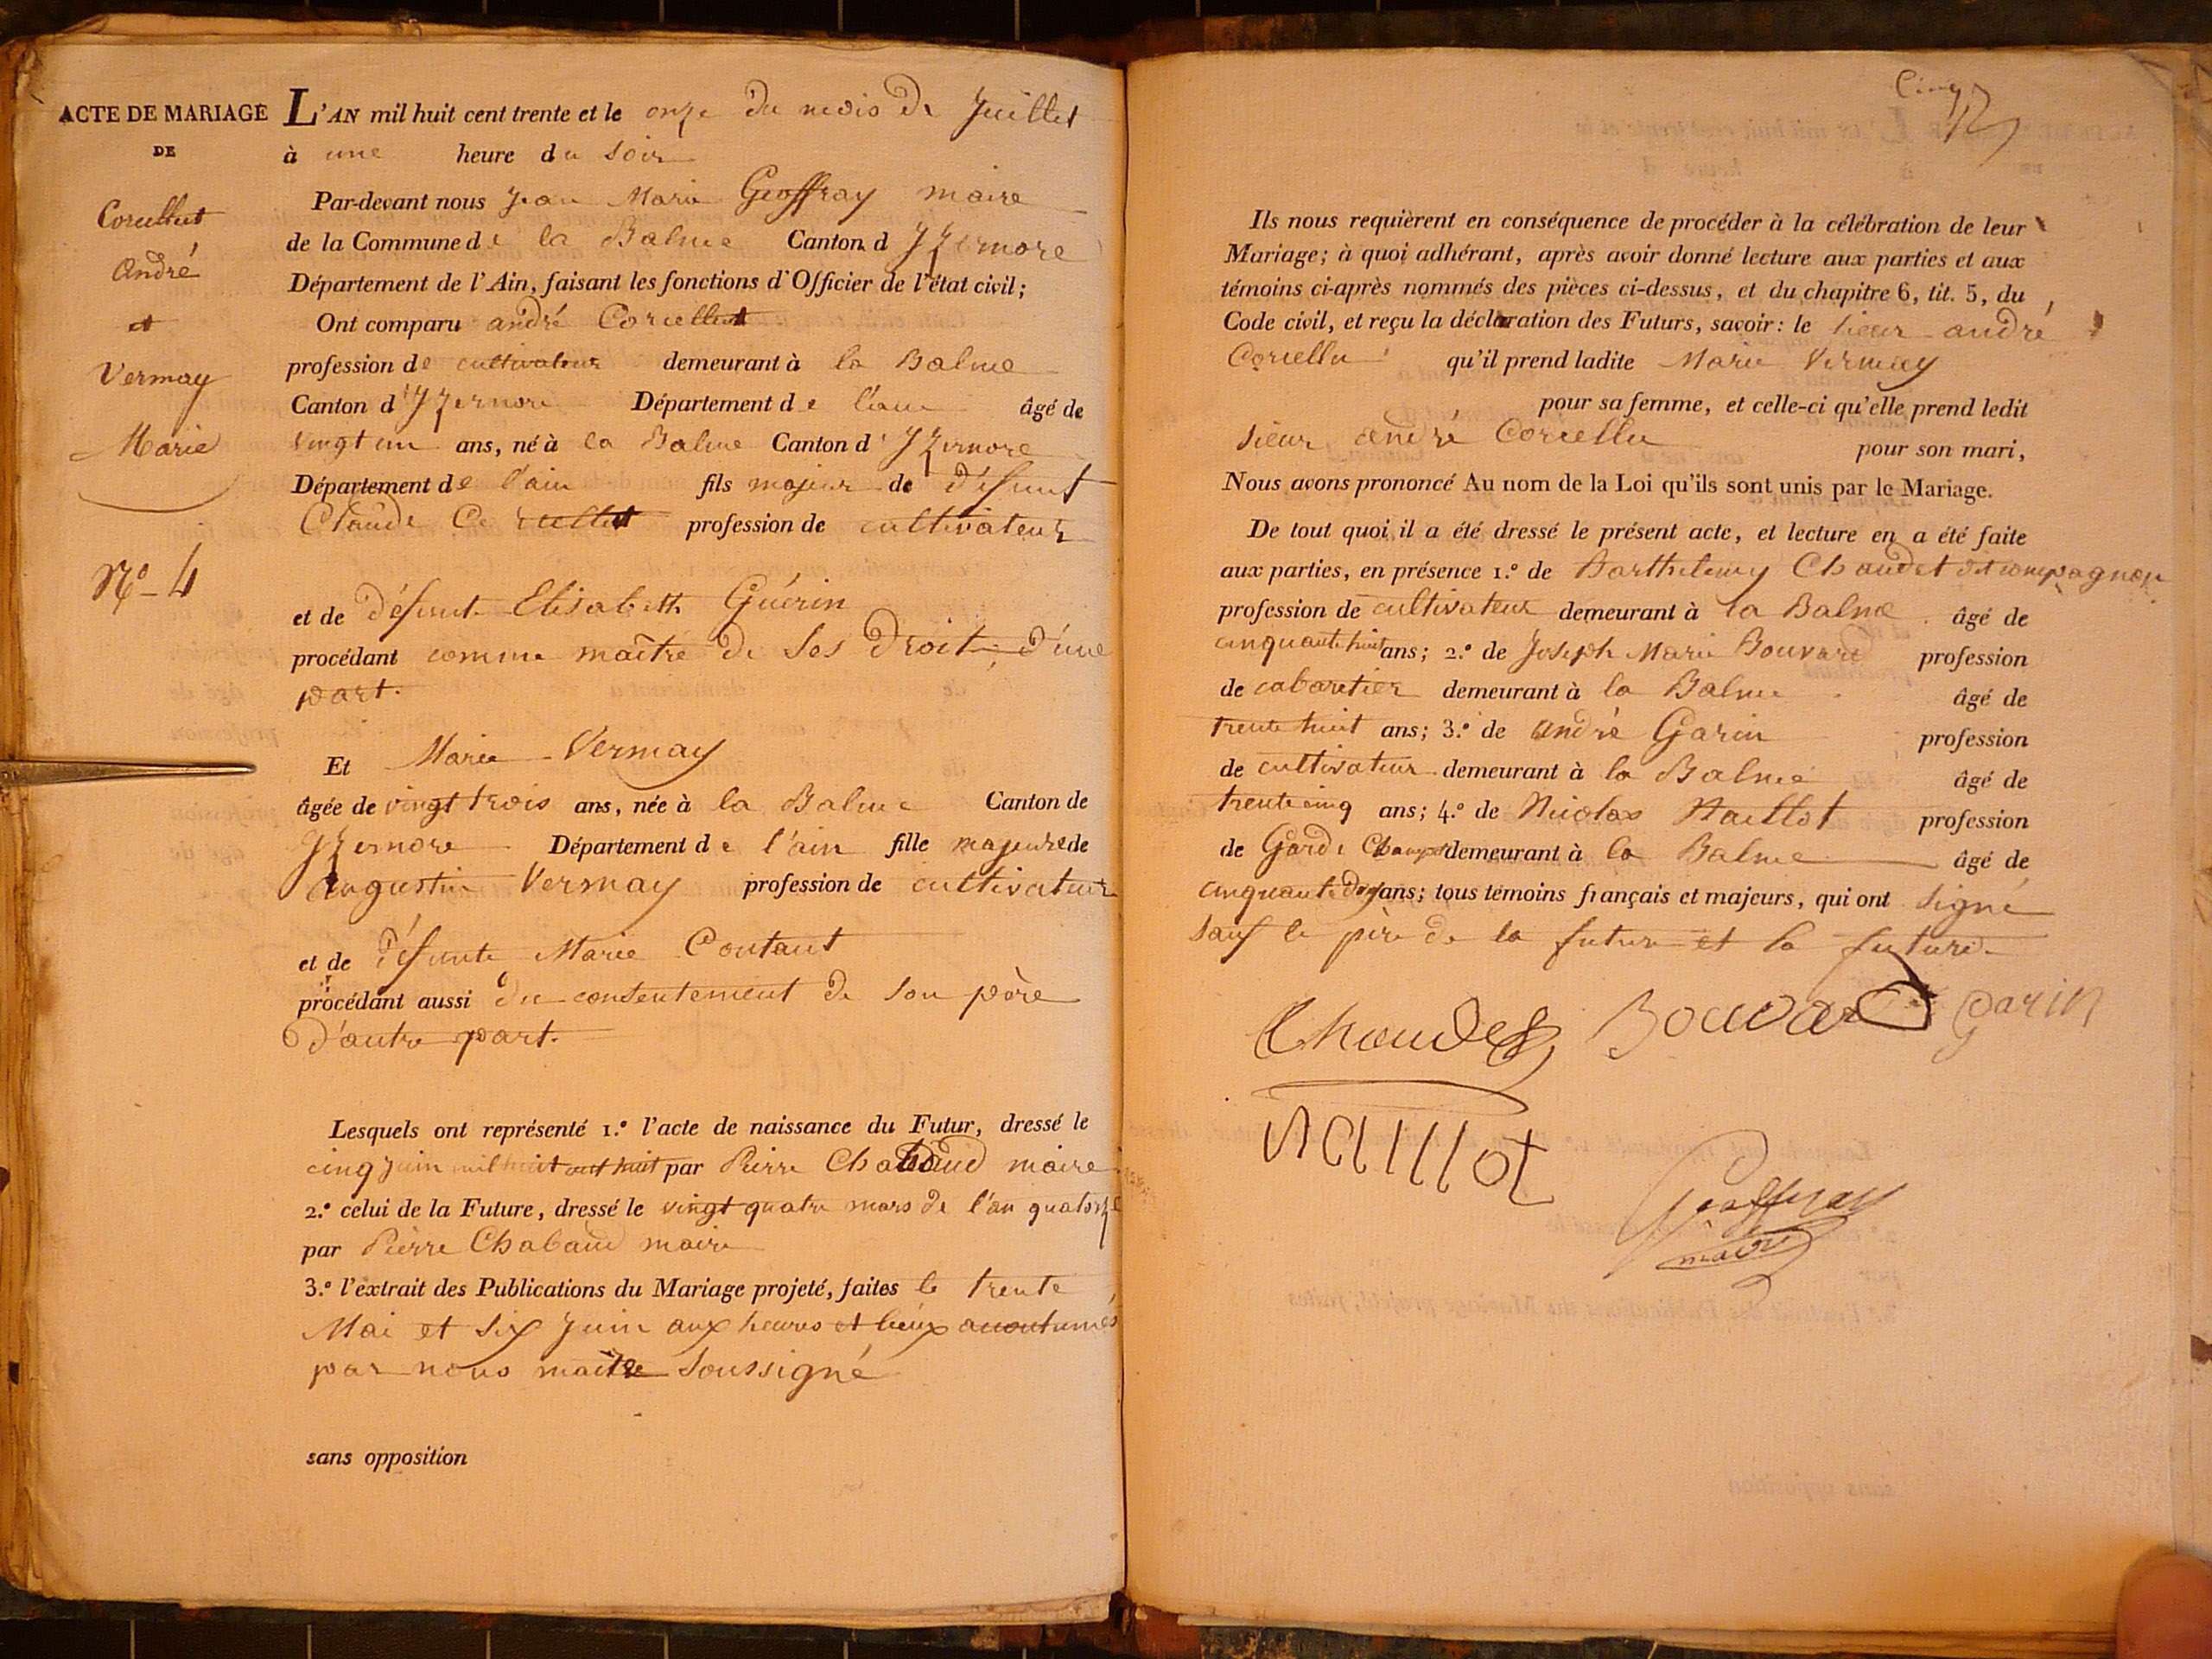 ACTE DE MARIAGE
DE
Corcellut
André
et
Vermay
Marie
N.º 4
L'AN mil huit cent trente et le onze du mois de Juillet
à une heure du soir
Par-devant nous Jean Marie Geoffray maire
de la Commune de la Balme Canton d Izernore
Département de l'Ain, faisant les fonctions d'Officier de l'état civil;
Ont comparu andré Corcellut
profession de cultivateur demeurant à la Balme
Canton d'Izernore Département de l'ain âgé de
vingt un ans, né à la Balme Canton d'Izernore
Département de l'ain fils majeur de défunt
Claude Corcellut profession de cultivateur
et de défunte Elisabeth Guérin
procédant comme maître de ses droit, d'une
part.
Et Marie Vermay
âgée de vingt trois ans, née à la Balme Canton de
Izernore Département de l'ain fille majeure de
augustin Vermay profession de cultivateur
et de défunte Marie Coutaut
procédant aussi du consentement de son père
d'autre part.
Lesquels ont représenté 1.º l'acte de naissance du Futur, dressé le
cinq juin mil huit cent huit par Pierre Chabaud maire
2.º celui de la Future, dressé le vingt quatre mars de l'an quatorze
par Pierre Chabaud maire
3.º l'extrait des Publications du Mariage projeté, faites le trente
Mai et six Juin aux heures et lieux acoutumés
par nous maitre soussigné
sans opposition
Cinq
Ils nous requièrent en conséquence de procéder à la célébration de leur
Mariage; à quoi adhérant, après avoir donné lecture aux parties et aux
témoins ci-après nommés des pièces ci-dessus, et du chapitre 6, tit. 5, du
Code civil, et reçu la déclaration des Futurs, savoir: le sieur andré
Corcellu qu'il prend ladite Marie Vermay
pour sa femme, et celle-ci qu'elle prend ledit
sieur andré Corcellu pour son mari,
Nous avons prononcé Au nom de la Loi qu'ils sont unis par le Mariage.
De tout quoi il a été dressé le présent acte, et lecture en a été faite
aux parties, en présence 1.º de Barthelemy Chaudet dit compagnon
profession de cultivateur demeurant à la Balme âgé de
cinquante huit ans; 2.º de Joseph Marie Bouvard profession
de cabaretier demeurant à la Balme âgé de
trente huit ans; 3.º de andré Garin profession
de cultivateur demeurant à la Balme âgé de
trente cinq ans; 4.º de Nicolas Naillot profession
de Garde Champ demeurant à la Balme âgé de
cinquante deux ans; tous témoins français et majeurs, qui ont signé
sauf le père de la future et la future.
Chaudet Bouvard Garin
Naillot
Geoffray
maire